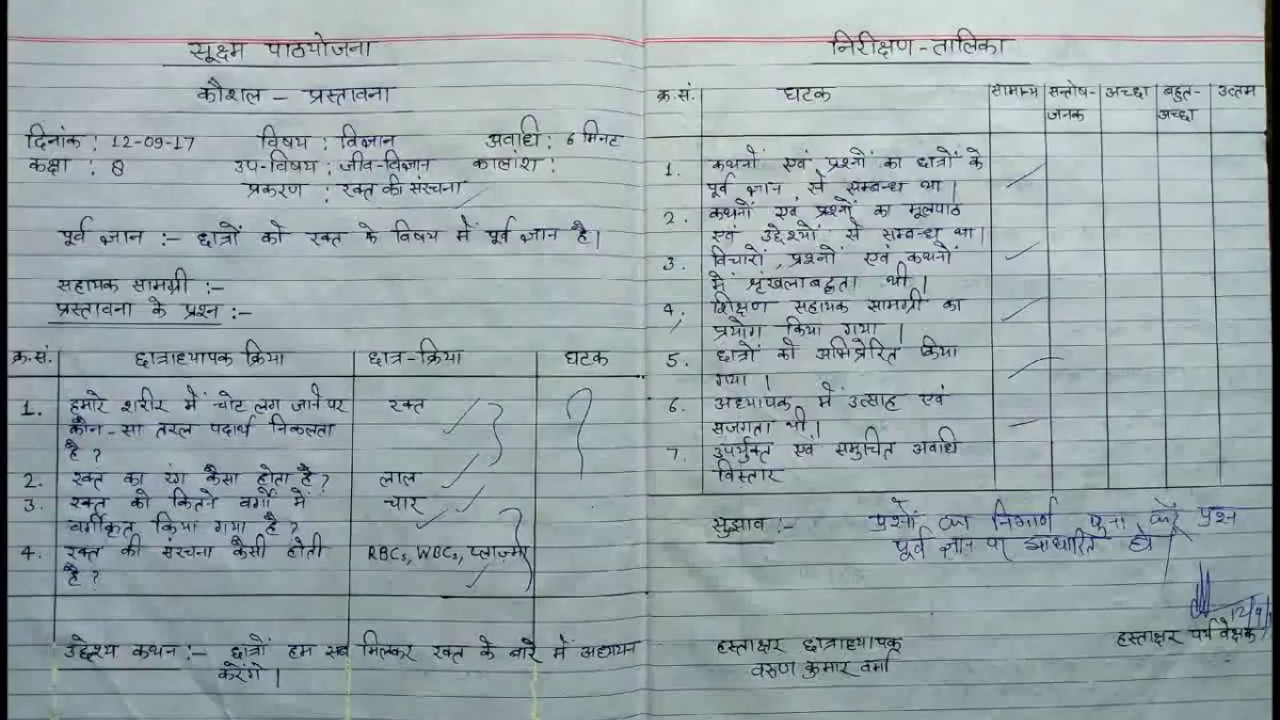 सूक्ष्म पाठयोजना
कौशल - प्रस्तावना
दिनांक : 12-09-17 विषय : विज्ञान अवधि : 6 मिनट
कक्षा : 8 उप-विषय : जीव-विज्ञान कालांश :
प्रकरण : रक्त की संरचना
पूर्व ज्ञान :- छात्रों को रक्त के विषय में पूर्व ज्ञान है।
सहायक सामग्री :-
प्रस्तावना के प्रश्न :-
क्र.सं. छात्राध्यापक क्रिया छात्र-क्रिया घटक
1. हमारे शरीर में चोट लग जाने पर रक्त
कौन-सा तरल पदार्थ निकलता
है ?
2. रक्त का रंग कैसा होता है ? लाल
3. रक्त को कितने वर्गों में चार
वर्गीकृत किया गया है ?
4. रक्त की संरचना कैसी होती RBCs, WBCs, प्लाज़्मा
है ?
उद्देश्य कथन :- छात्रों हम सब मिलकर रक्त के बारे में अध्ययन
करेंगे ।
निरीक्षण - तालिका
क्र.सं. घटक सामान्य सन्तोष- अच्छा बहुत- उत्तम
जनक अच्छा
1. कथनों एवं प्रश्नों का छात्रों के
पूर्व ज्ञान से सम्बन्ध था।
2. कथनों एवं प्रश्नों का मूलपाठ
एवं उद्देश्यों से सम्बन्ध था।
3. विचारों, प्रश्नों एवं कथनों
में श्रृंखलाबद्धता थी ।
4. शिक्षण सहायक सामग्री का
प्रयोग किया गया ।
5. छात्रों को अभिप्रेरित किया
गया ।
6. अध्यापक में उत्साह एवं
सजगता थी।
7. उपर्युक्त एवं समुचित अवधि
विस्तार
सुझाव :- प्रश्नों का निर्माण पुनः करें प्रश्न
पूर्व ज्ञान पर आधारित हो
12/9/
हस्ताक्षर छात्राध्यापक हस्ताक्षर पर्यवेक्षक
वरुण कुमार वर्मा